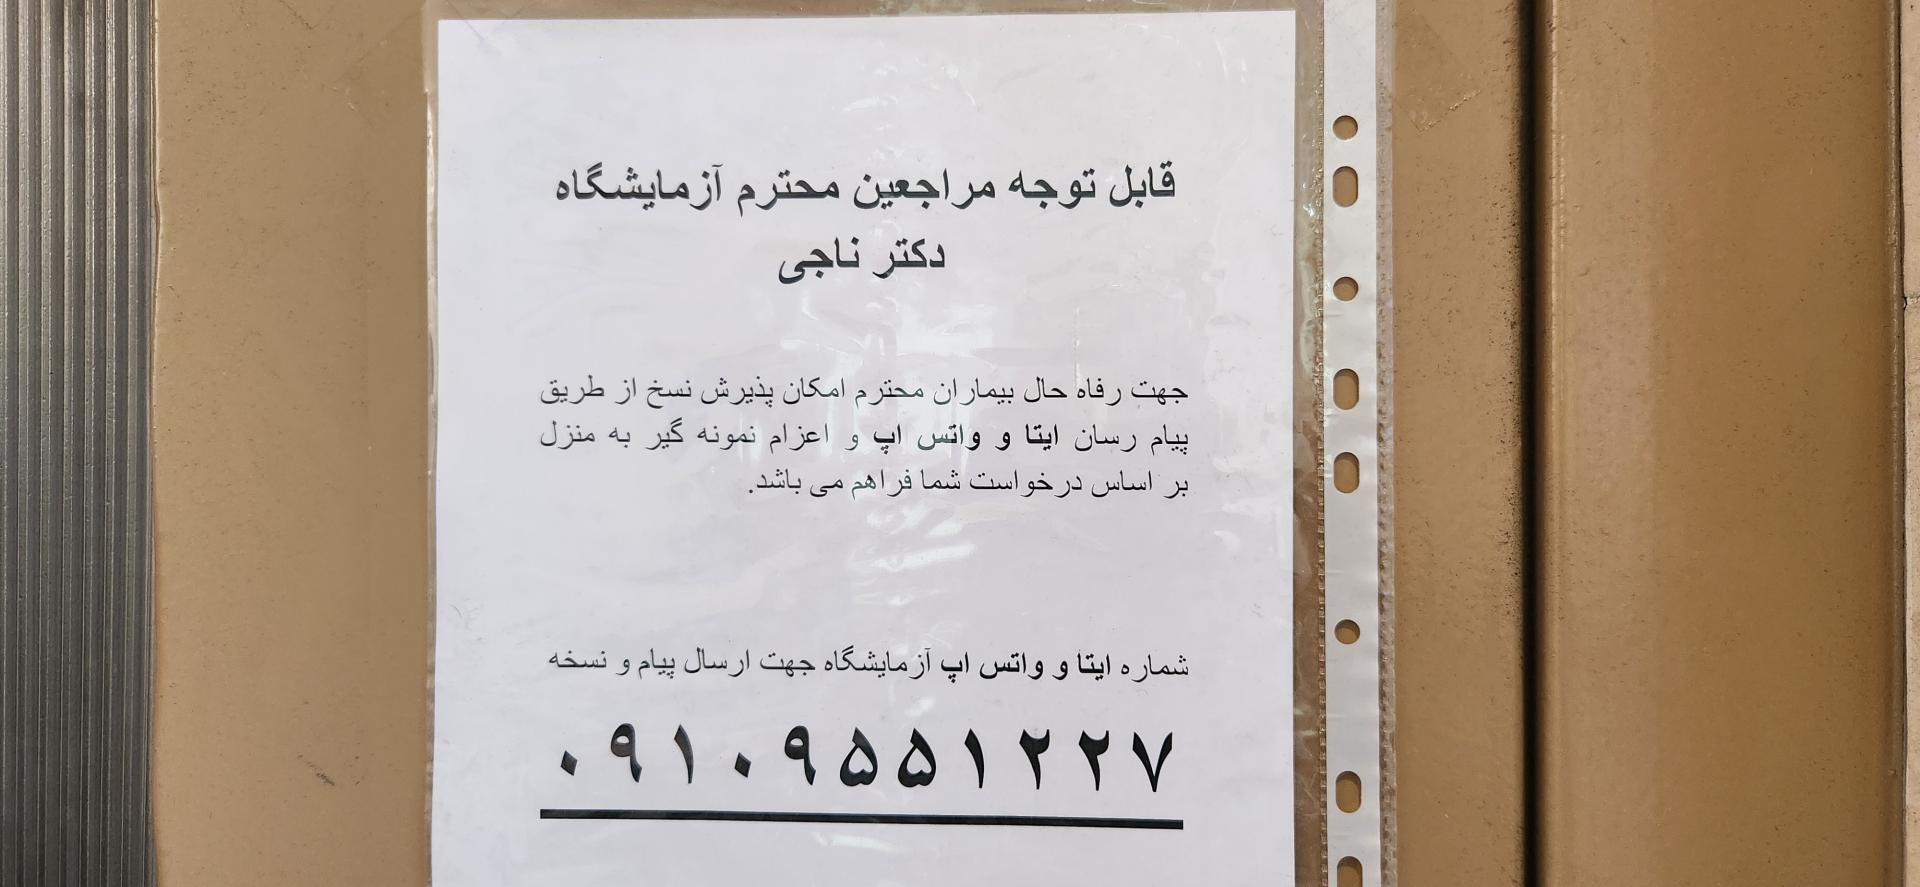 قابل توجه مراجعین محترم آزمایشگاه
دکتر ناجی
جهت رفاه حال بیماران محترم امکان پذیرش نسخ از طریق
پیام رسان ایتا و واتس اپ و اعزام نمونه گیر به منزل
بر اساس درخواست شما فراهم می باشد.
شماره ایتا و واتس اپ آزمایشگاه جهت ارسال پیام و نسخه
۰۹۱۰۹۵۵۱۲۲۷